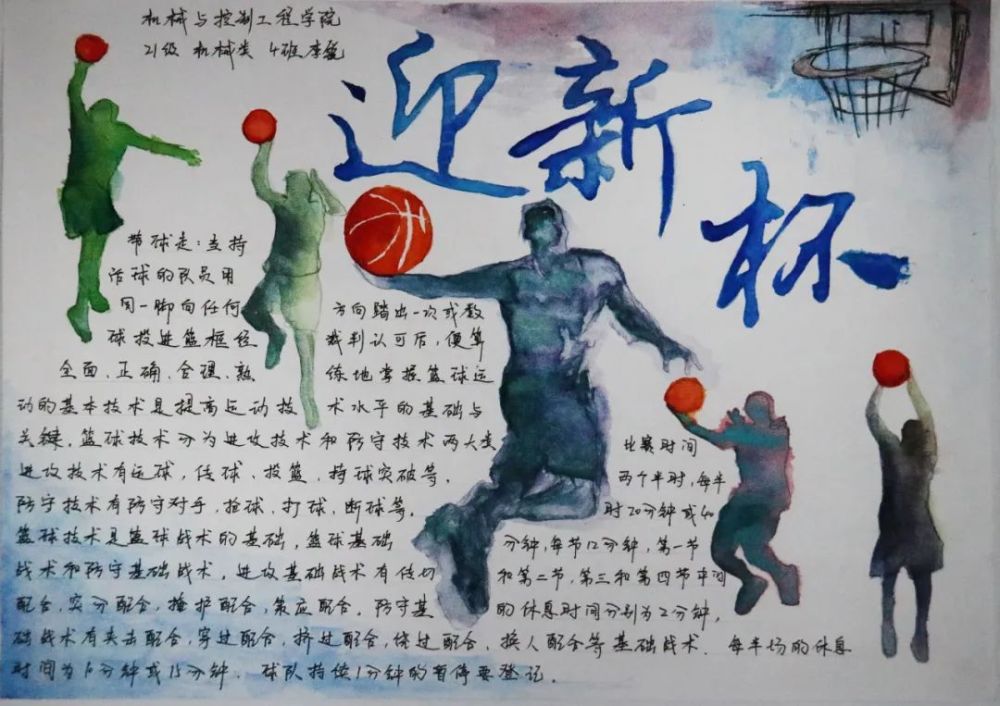 机械与控制工程学院
21级 机械类 4班李
迎新杯
带球走：当持
活球的队员用
同一脚向任何 方向踏出一次或数
球投进篮框经 裁判认可后，便算
全面、正确、合理、熟 练地掌握篮球运
动的基本技术是提高运动技 术水平的基础与
关键，篮球技术分为进攻技术和防守技术两大类
进攻技术有运球，传球、投篮，持球突破等，
防守技术有防守对手，抢球、打球，断球等，
篮球技术是篮球战术的基础，篮球基础
战术和防守基础战术，进攻基础战术有传切
配合，突分配合，掩护配合，策应配合，防守基
础战术有夹击配合，穿过配合，挤过配合，绕过配合，换人配合等基础战术．
比赛时间
两个半时，每半
时20分钟或40
分钟，每节12分钟，第一节
和第二节，第三和第四节中间
的休息时间分别为2分钟，
每半场的休息
时间为10分钟或15分钟． 球队持续1分钟的暂停要登记．